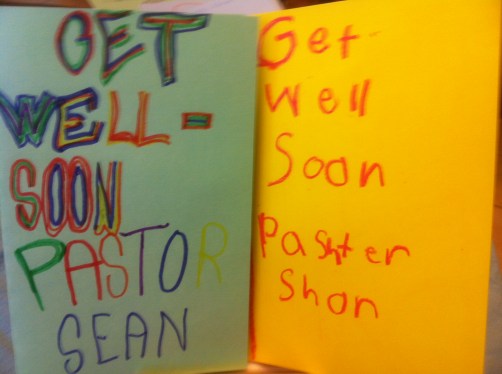 GET
WELL-
SOON
PASTOR
SEAN
Get-
Well
Soon
Pashter
Shon